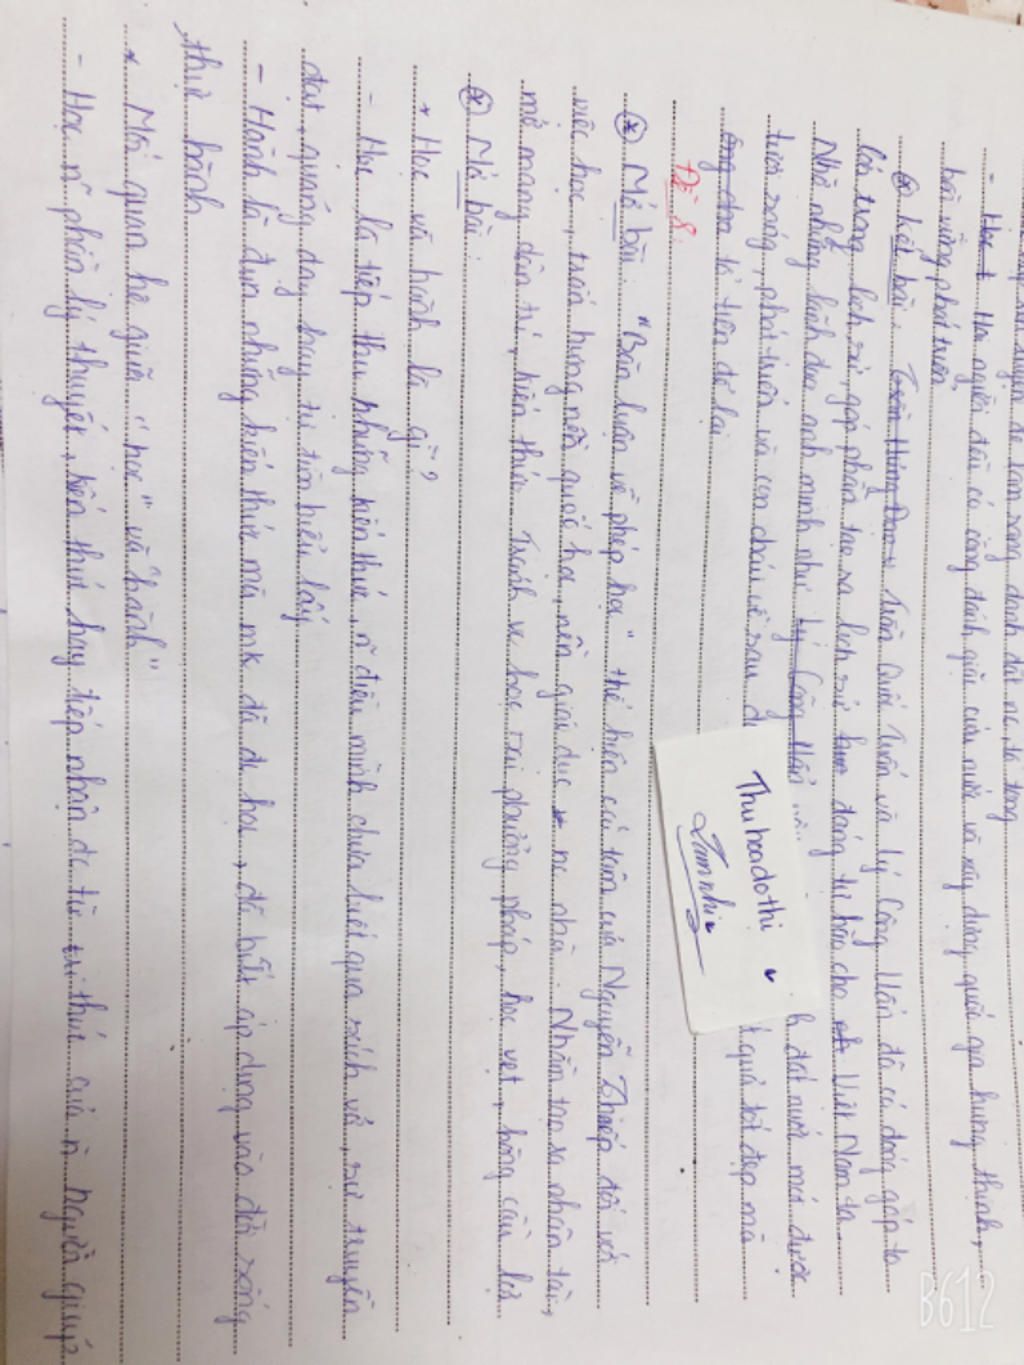 để làm sáng danh đất nc ta trong
- Hai người đều có công đánh giặc cứu nước và xây dựng quốc gia hưng thịnh,
bền vững phát triển
* Kết bài: Trần Hưng Đạo Trần Quốc Tuấn và Lý Công Uẩn đã có đóng góp to
lớn trong lịch sử, góp phần tạo ra lịch sử đáng tự hào cho Việt Nam ta.
Nhờ những lãnh đạo anh minh như Lý Công Uẩn đất nước mới được
tươi sáng, phát triển và con cháu về sau quả tốt đẹp mà
tổ tiên để lại
Đề 8:
* Mở bài: "Bàn luận về phép học" thể hiện cái tâm của Nguyễn Thiếp đối với
việc học, trấn hưng nền quốc học, nền giáo dục nc nhà. Nhằm tạo ra nhân tài,
mở mang dân trí, kiến thức. Tránh vc học sai phương pháp, học vẹt, hòng cầu lợi
* Mở bài:
+ Học và hành là gì?
- Học là tiếp thu những kiến thức, n~ điều mình chưa biết qua sách vở, sự truyền
đạt, giảng dạy hay tự tìm hiểu lấy
- Hành là đựn những kiến thức mà mk đã đc học, đã biết áp dụng vào đời sống
thực hành
* Mối quan hệ giữa "học" và "hành"
- Học n~ phần lý thuyết, kiến thức hay tiếp nhận đc từ tri thức của n~ người giúp
Thuhoadothi
Lamnhi
B612